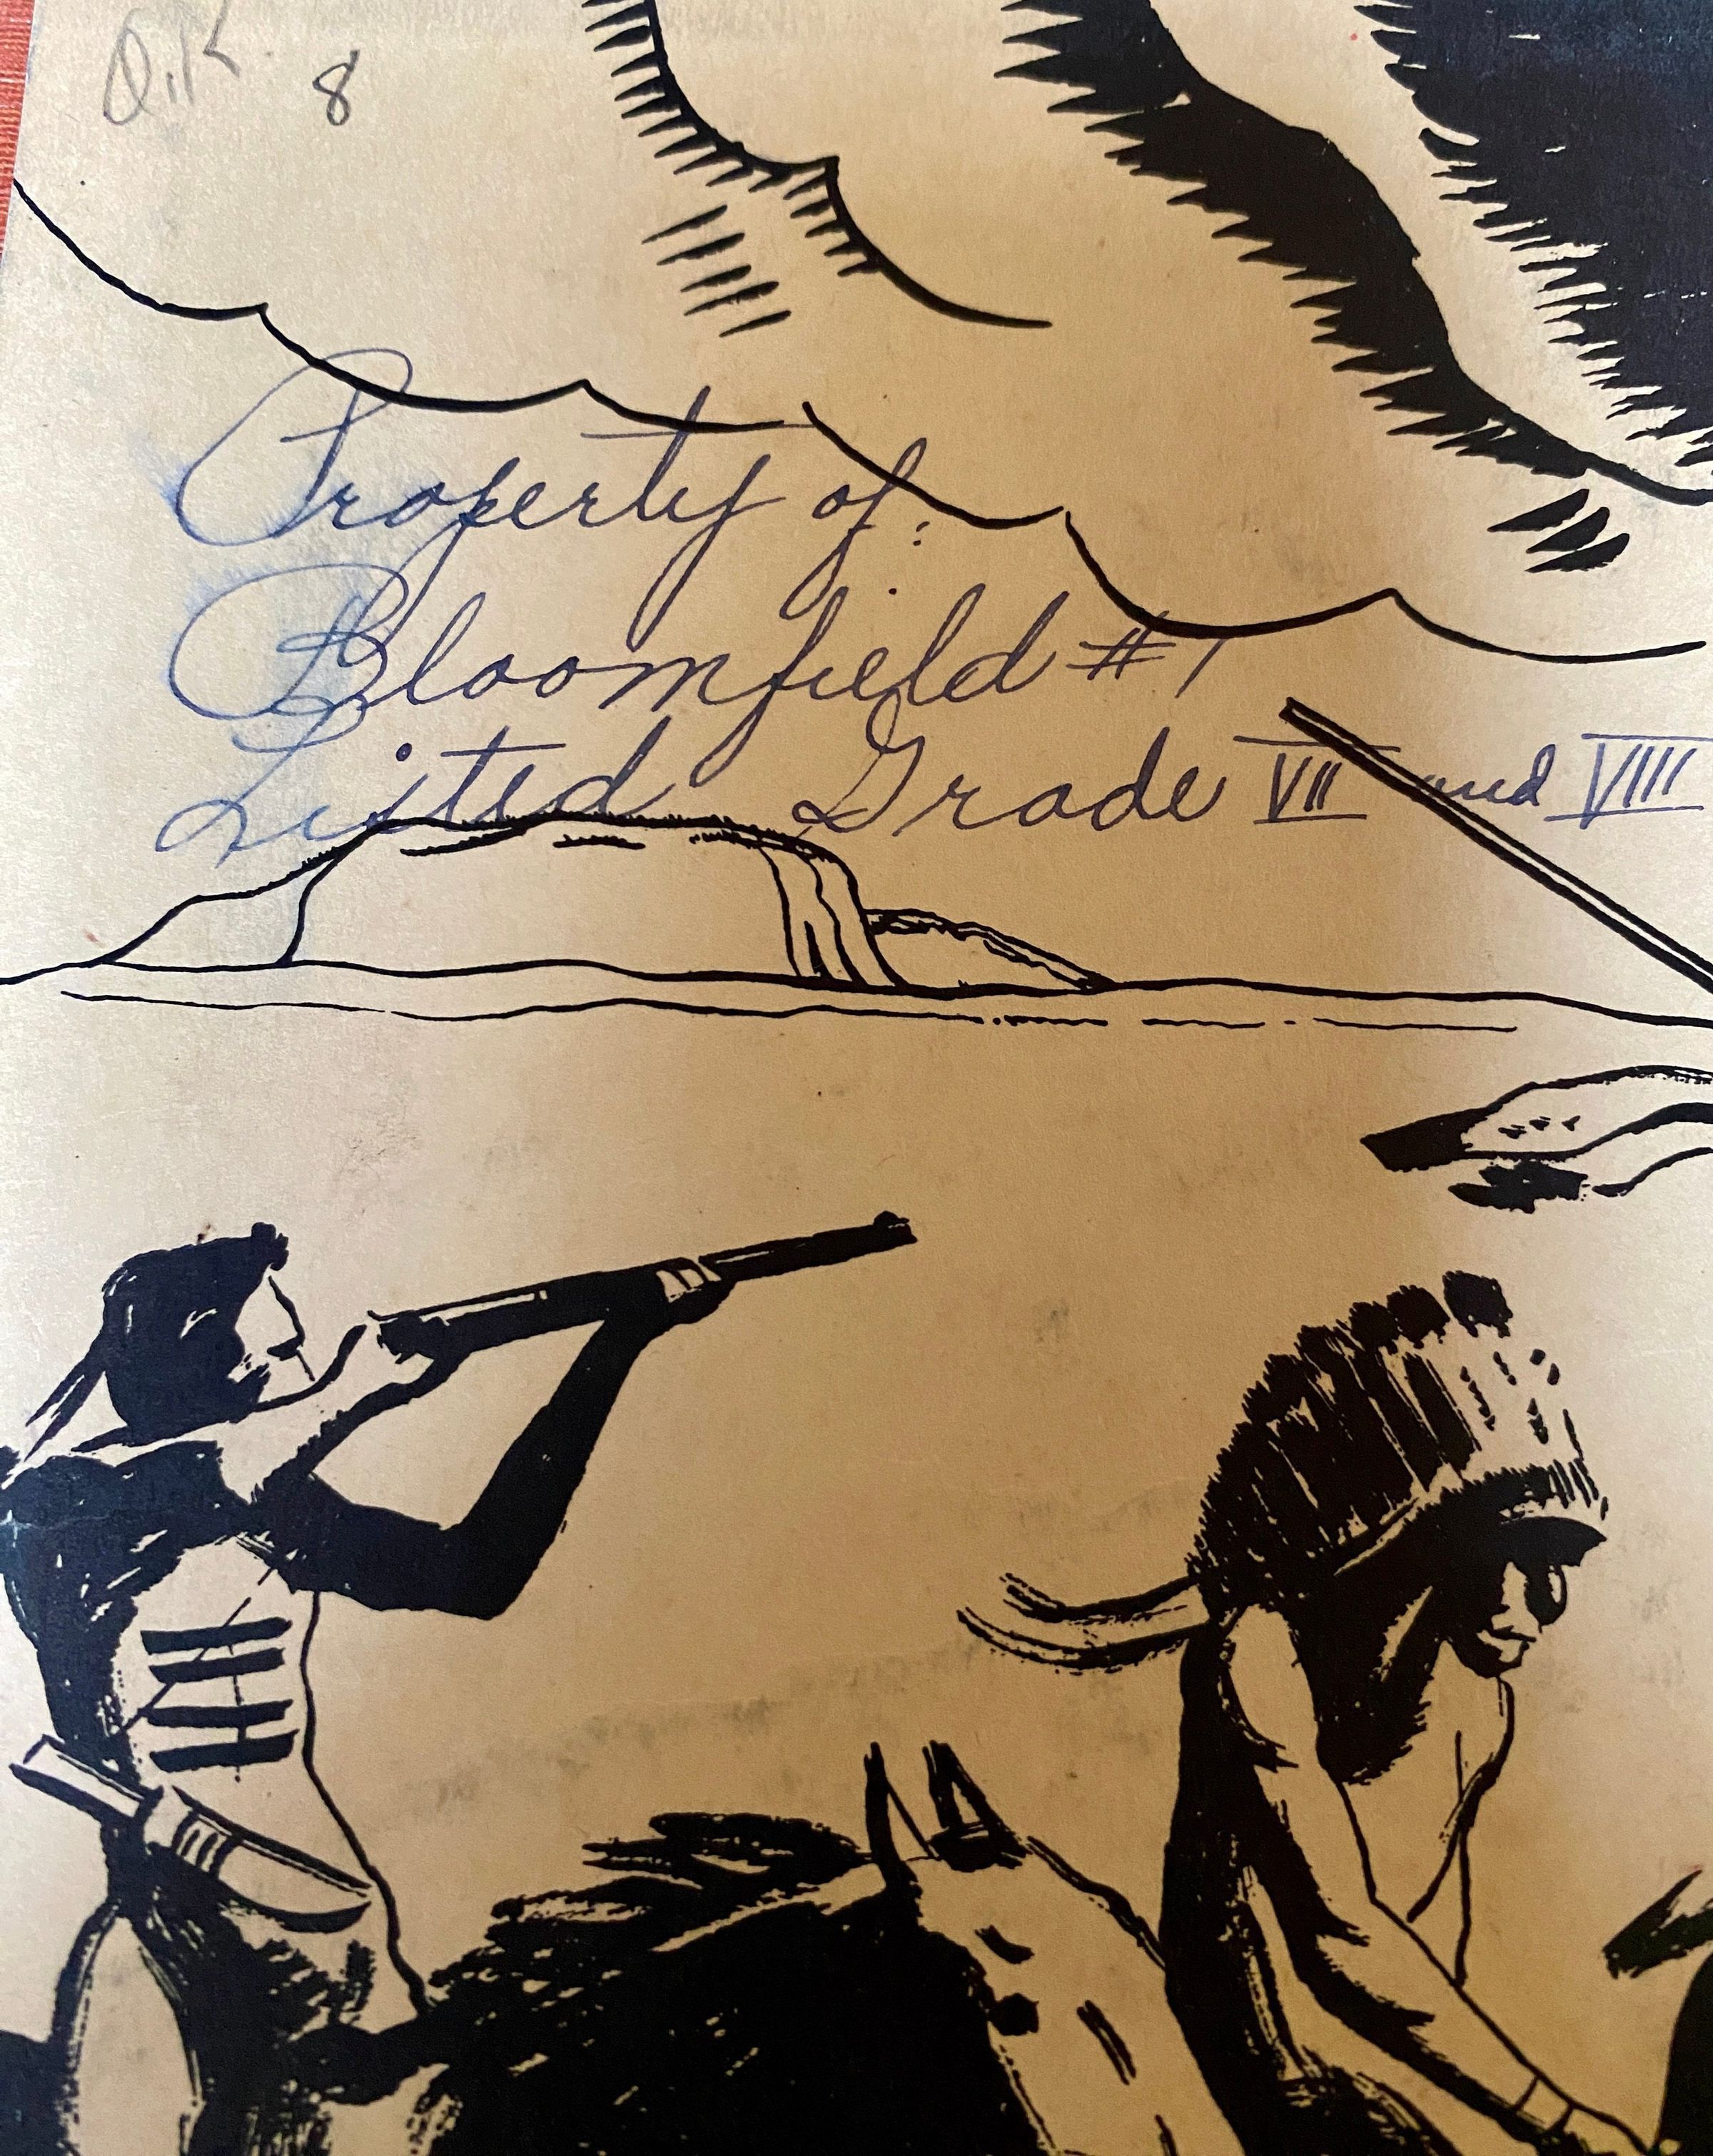 O.K. 8
Property of:
Bloomfield #1
Listed Grade VII and VIII